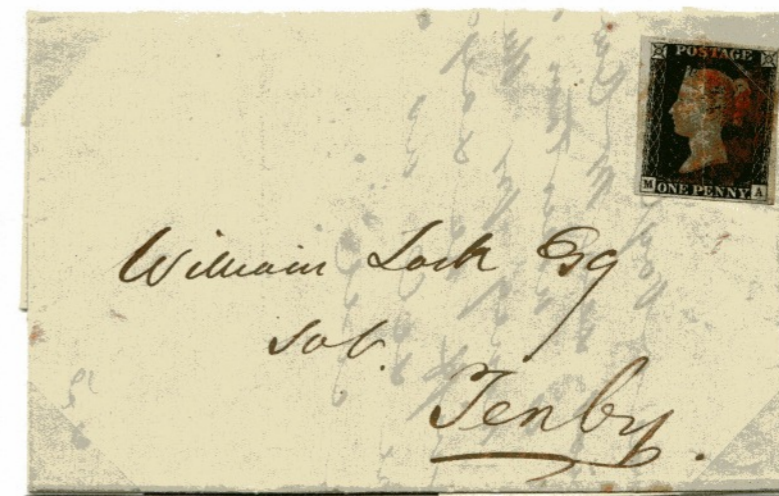 POSTAGE
M ONE PENNY A
William Lock Esq
Sol.
Tenby.